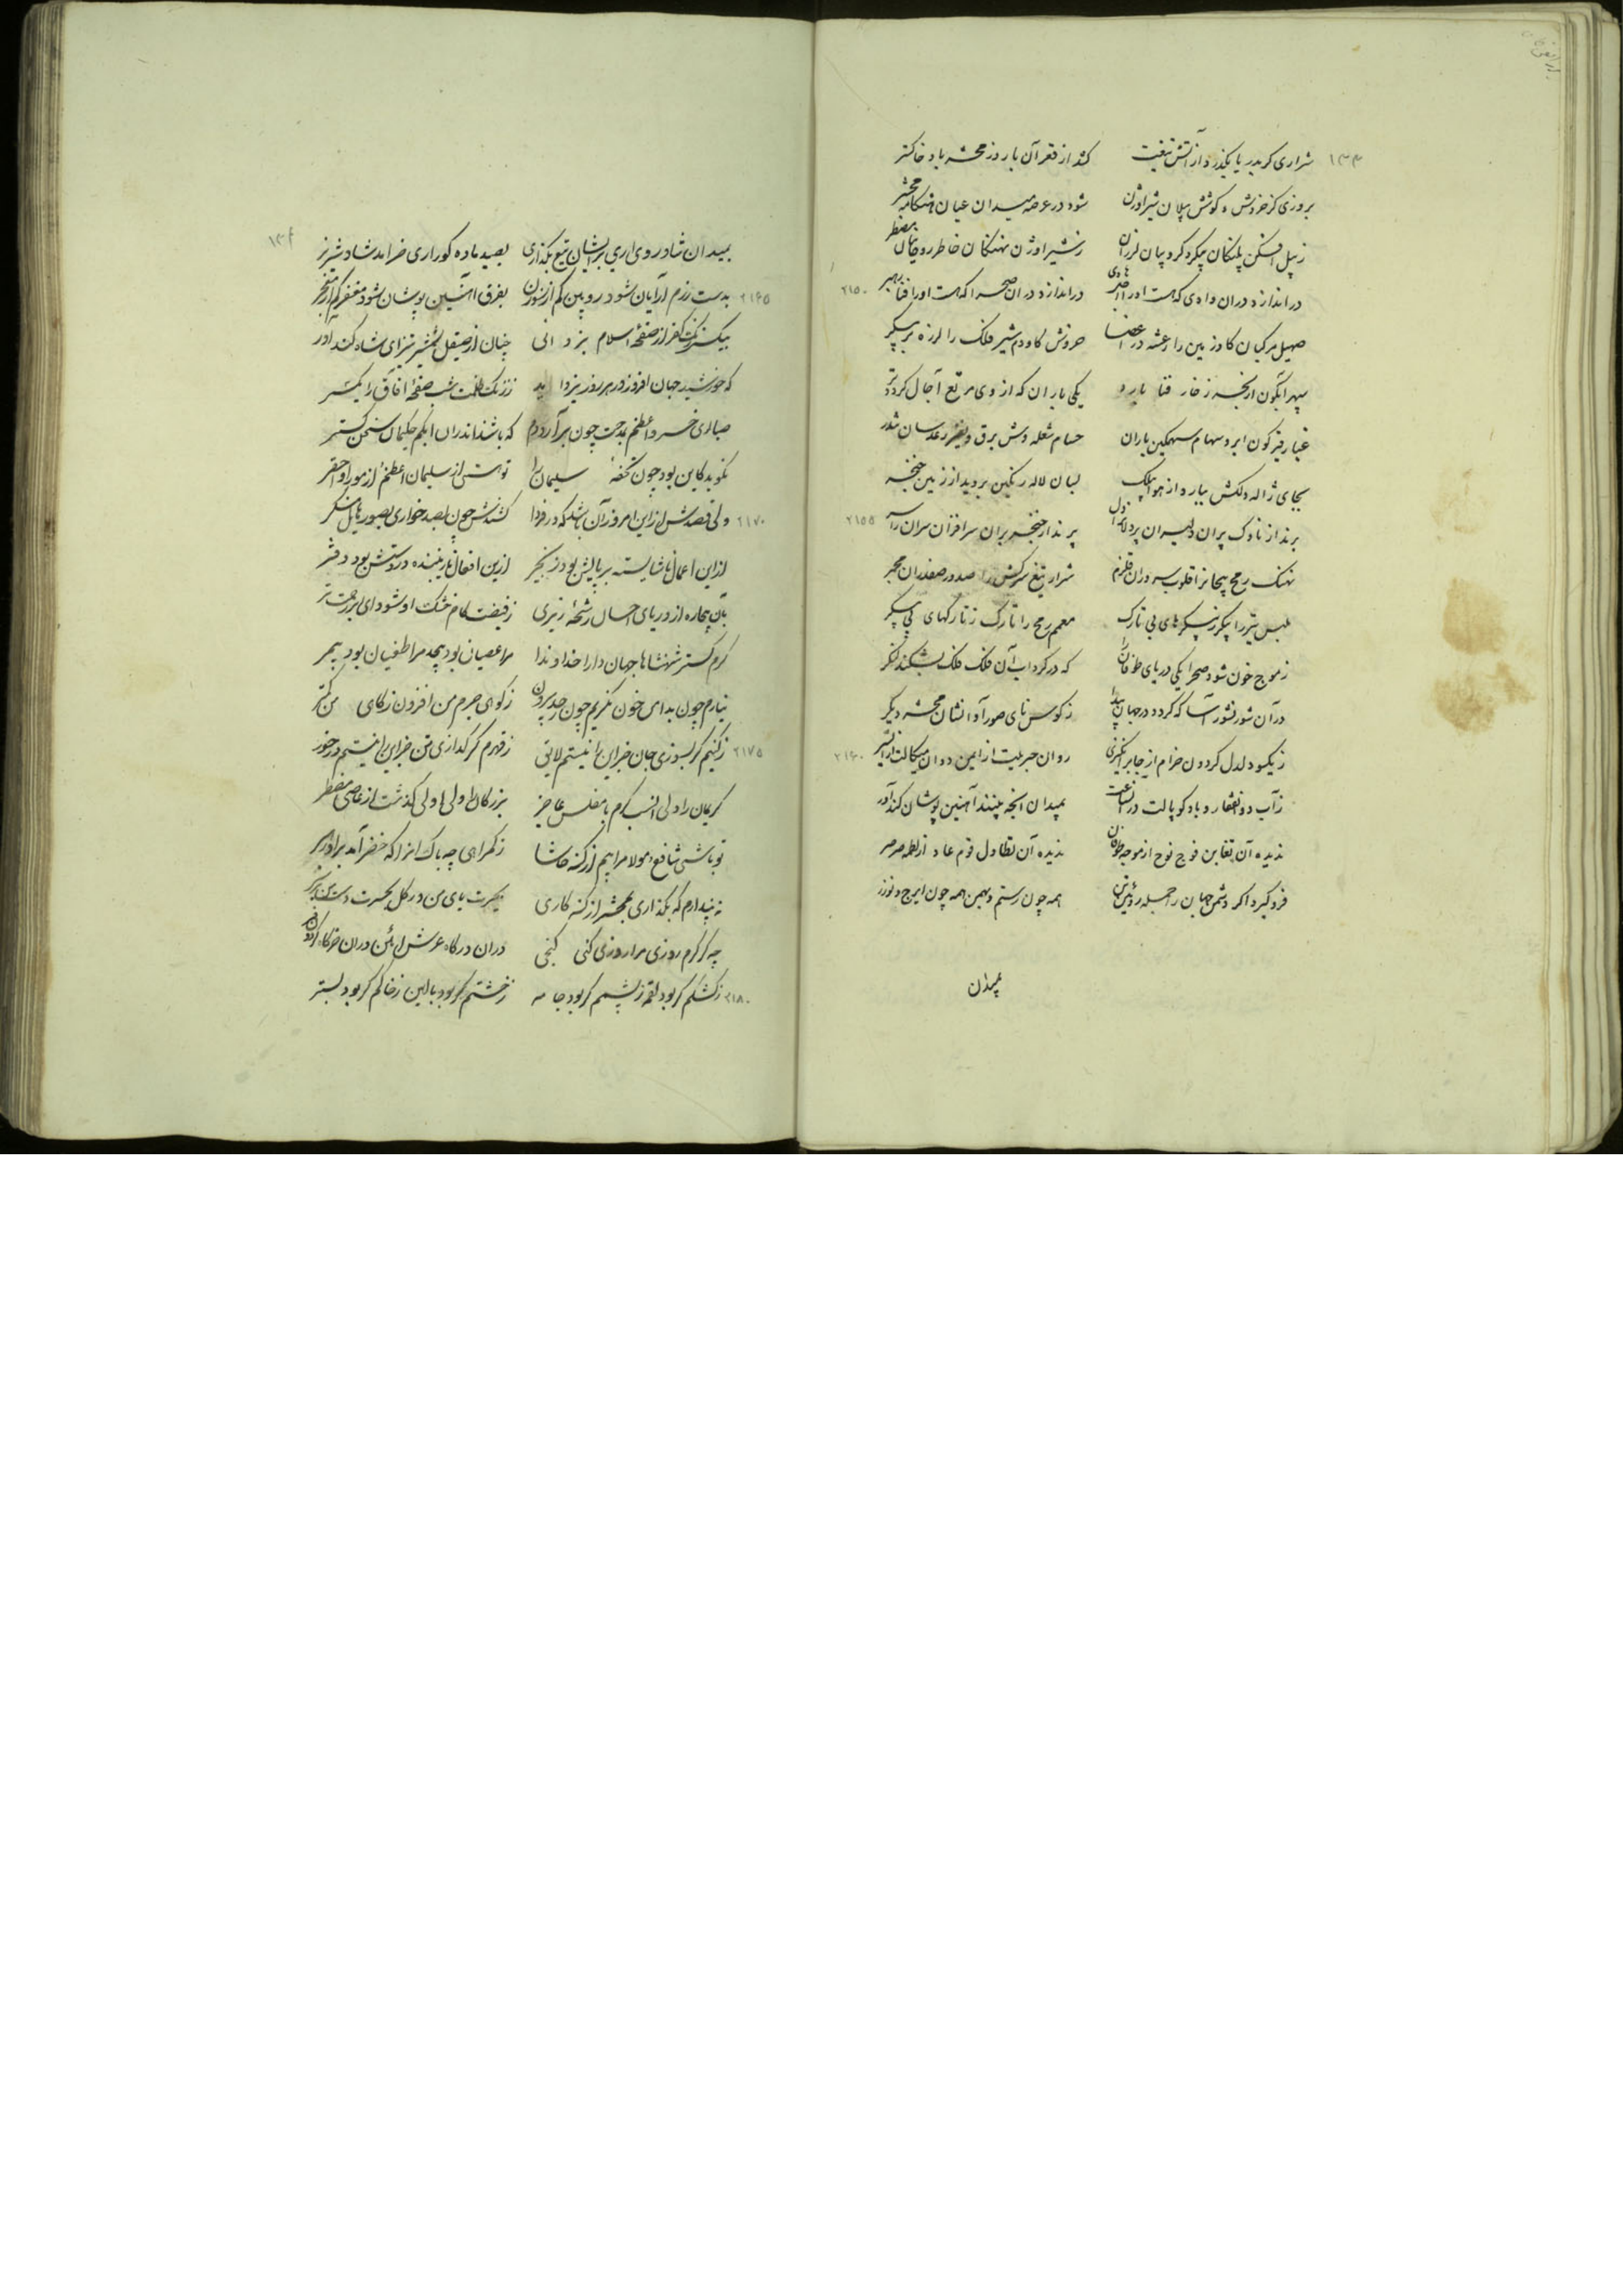 شراری کر بدریا بگذرد از آتش تیغت کشد از قعر آن با روز محشر باد خاکستر
بروزی کز خروش و کوشش یلان شیر اوژن شود در عرصه میدان عیان هنگامه محشر
ز پیل افکن پلنگان پیکر گردوبیان لرزان ز شیر اوژن نهنگان خاطر مضطر
در اندازد دران وادی که هست اورا در اندازد دران صحرا که هست اورا فنا رهبر
صهیل مرکبان گاو زمین را رعشه در اعضا خروش گاودم شیر فلک را لرزه بر پیکر
سپهر آبگون از بحر زخار فنا بارد یکی باران که از وی مرتع آجال گردد تر
غبار قیرگون ابر و سهام سهمگین باران حسام شعله وش برق و نفیر رعد سان تندر
بجای ژاله دلکش ببارد از هوا بسان لاله رنگین بروید از زمین خنجر
برند از ناوک پران دلیران پر دلان را دل پرند از خنجر بران سرافرازان سران را سر
نهنگ رمح پیچان را قلوب سروران قلزم شرار تیغ سرکش را صدور صفدران مجمر
ملبس تیر را پیکر ز پیکرهای بی تارک معمم رمح را تارک ز تارکهای بی پیکر
ز موج خون شود صحرا یکی دریای طوفان زا که در گرداب آن فلک فلک بشکند لنگر
در آن شور نشور آسا که گردد در جهان پیدا ز کوس نای صور آوا نشان محشر دیگر
ز یکسو دلدل گردون خرام از جا برانگیزی روان جبریلت از ایمن دوان میکالت از ایسر
ز آب ذوالفقار و باد کوپالت در آن ساعت بمیدان آنچه بینند آهنین پوشان کندآور
ندیده آن تغابن فوج نوح از موجه طوفان ندیده آن تطاول قوم عاد از لطمه صرصر
فرو گیرد اگر دشمن جهان را جمله روئین تن همه چون رستم و بهمن همه چون ایرج و نوذر
بمیدان
بمیدان شاد روی آری بر ایشان تیغ بگذاری بصید ماده گوران ری خرامد شاد شیر نر
بدست رزم آرایان شود روبین کم از سوزن بفرق آهنین پوشان شود مغفر کم از معجر
بیکسر نکبت کفر از صفحه اسلام بزدائی چنان از صیقل شمشیر تیز ای شاه کند آور
که خورشید جهان افروز در هر روز بزداید ز زنگ ظلمت شب صفحه آفاق را یکسر
صباری خسرو اعظم بمدحت چون برآرد دم که باشند اندران ابکم حکیمان سخن گستر
نگوید کاین بود چون تحفه سلیمان را توئی از سلیمان اعظم و از مور او احقر
ولی قصدش ازین امروز آن باشد که در فردا کشندش چون بصد خواری بصورتهای منکر
ازین اعمال ناشایسته بر پایش بود زنجیر ازین افعال نازیبنده در دستش بود دفتر
بآن بیچاره از دریای احسان رشحه ریزی ز فیضت کام خشک او شود ای ابر رحمت تر
کرم گستر شهنشاها جهان دارا خداوندا مرا عصیان بود بیحد مرا طغیان بود بیمر
نیارم چون بدامن خون نگریم چون ز حد بیرون ز کوهی جرم من افزون ز کاهی من کمتر
ز کینم گر بسوزی جان جز این را نیستم لایق ز قهرم گر گدازی تن جز این را نیستم در خور
کریمان را ولی انسب کرم با مفلس عاجز بزرگان را ولی اولی گذشت از عاصی مضطر
تو باشی شافع و مولا مرا بیم از گنه حاشا ز گمراهی چه باک آنرا که خضر آمد براو رهبر
نپندارم که بگذاری بمحشر از گنه کاری بحیرت پای من در گل بحسرت دست من بر سر
چه گر گرم روزی مرا روزی کنی کنجی دران درگاه عرش آئین دران خرگاه گردون فر
ز کشکم گر بود لقمه ز پشمم گر بود جامه ز خشتم گر بود بالین ز خاکم گر بود بستر